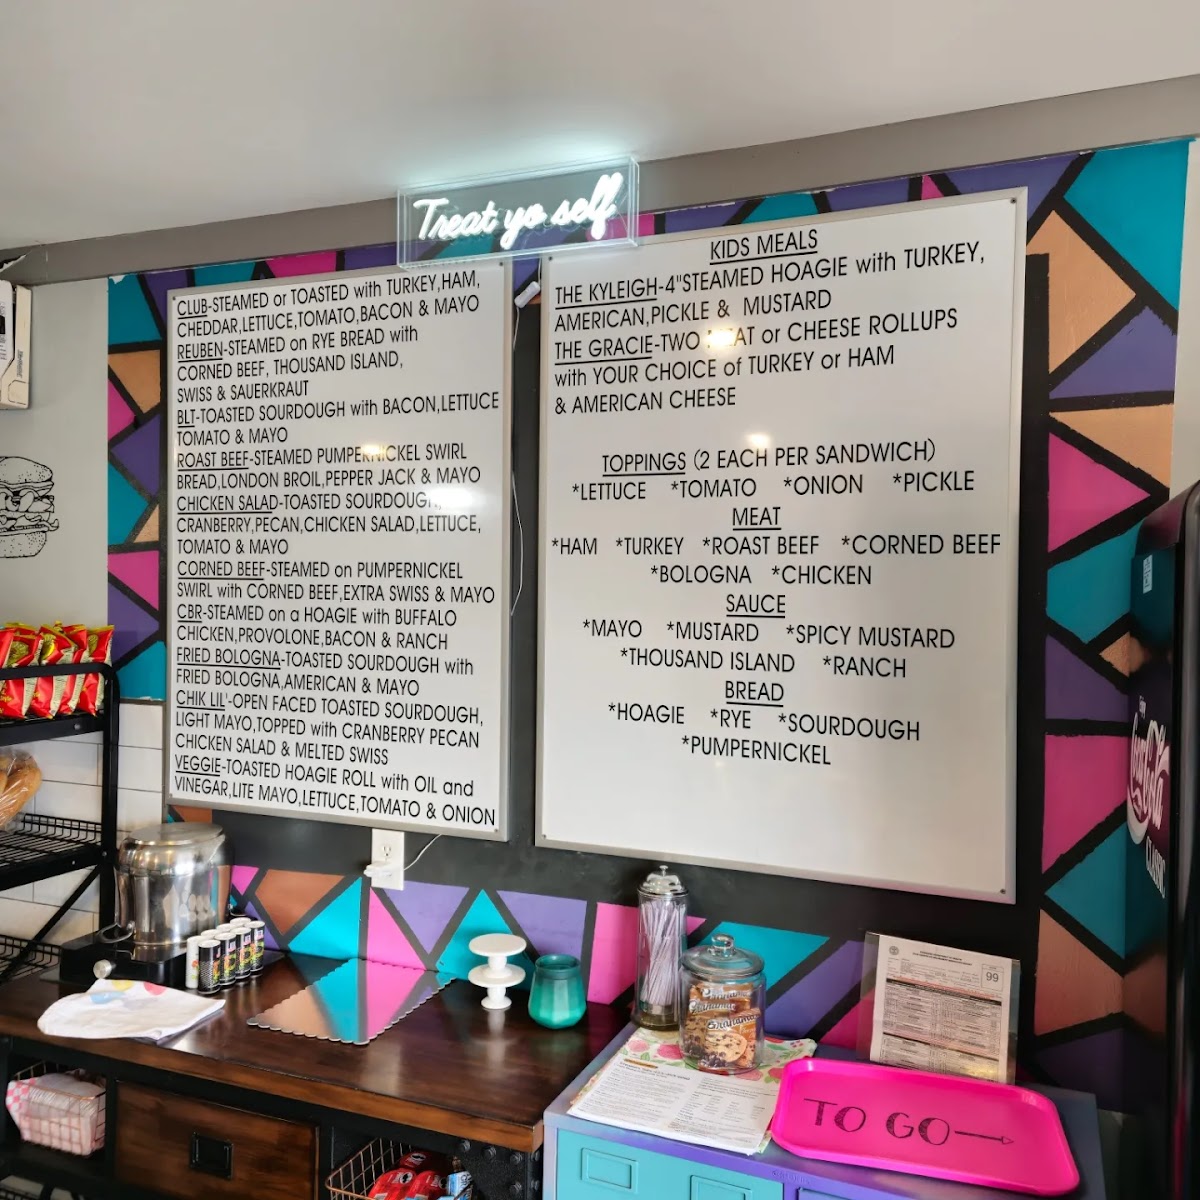 Treat yo self
CLUB-STEAMED or TOASTED with TURKEY,HAM,
CHEDDAR,LETTUCE,TOMATO,BACON & MAYO
REUBEN-STEAMED on RYE BREAD with
CORNED BEEF, THOUSAND ISLAND,
SWISS & SAUERKRAUT
BLT-TOASTED SOURDOUGH with BACON,LETTUCE
TOMATO & MAYO
ROAST BEEF-STEAMED PUMPERNICKEL SWIRL
BREAD,LONDON BROIL,PEPPER JACK & MAYO
CHICKEN SALAD-TOASTED SOURDOUGH,
CRANBERRY,PECAN,CHICKEN SALAD,LETTUCE,
TOMATO & MAYO
CORNED BEEF-STEAMED on PUMPERNICKEL
SWIRL with CORNED BEEF,EXTRA SWISS & MAYO
CBR-STEAMED on a HOAGIE with BUFFALO
CHICKEN,PROVOLONE,BACON & RANCH
FRIED BOLOGNA-TOASTED SOURDOUGH with
FRIED BOLOGNA,AMERICAN & MAYO
CHIK LIL'-OPEN FACED TOASTED SOURDOUGH,
LIGHT MAYO,TOPPED with CRANBERRY PECAN
CHICKEN SALAD & MELTED SWISS
VEGGIE-TOASTED HOAGIE ROLL with OIL and
VINEGAR,LITE MAYO,LETTUCE,TOMATO & ONION
KIDS MEALS
THE KYLEIGH-4"STEAMED HOAGIE with TURKEY,
AMERICAN,PICKLE & MUSTARD
THE GRACIE-TWO MEAT or CHEESE ROLLUPS
with YOUR CHOICE of TURKEY or HAM
& AMERICAN CHEESE
TOPPINGS (2 EACH PER SANDWICH)
*LETTUCE *TOMATO *ONION *PICKLE
MEAT
*HAM *TURKEY *ROAST BEEF *CORNED BEEF
*BOLOGNA *CHICKEN
SAUCE
*MAYO *MUSTARD *SPICY MUSTARD
*THOUSAND ISLAND *RANCH
BREAD
*HOAGIE *RYE *SOURDOUGH
*PUMPERNICKEL
Coca-Cola
CLASSIC
99
TO GO